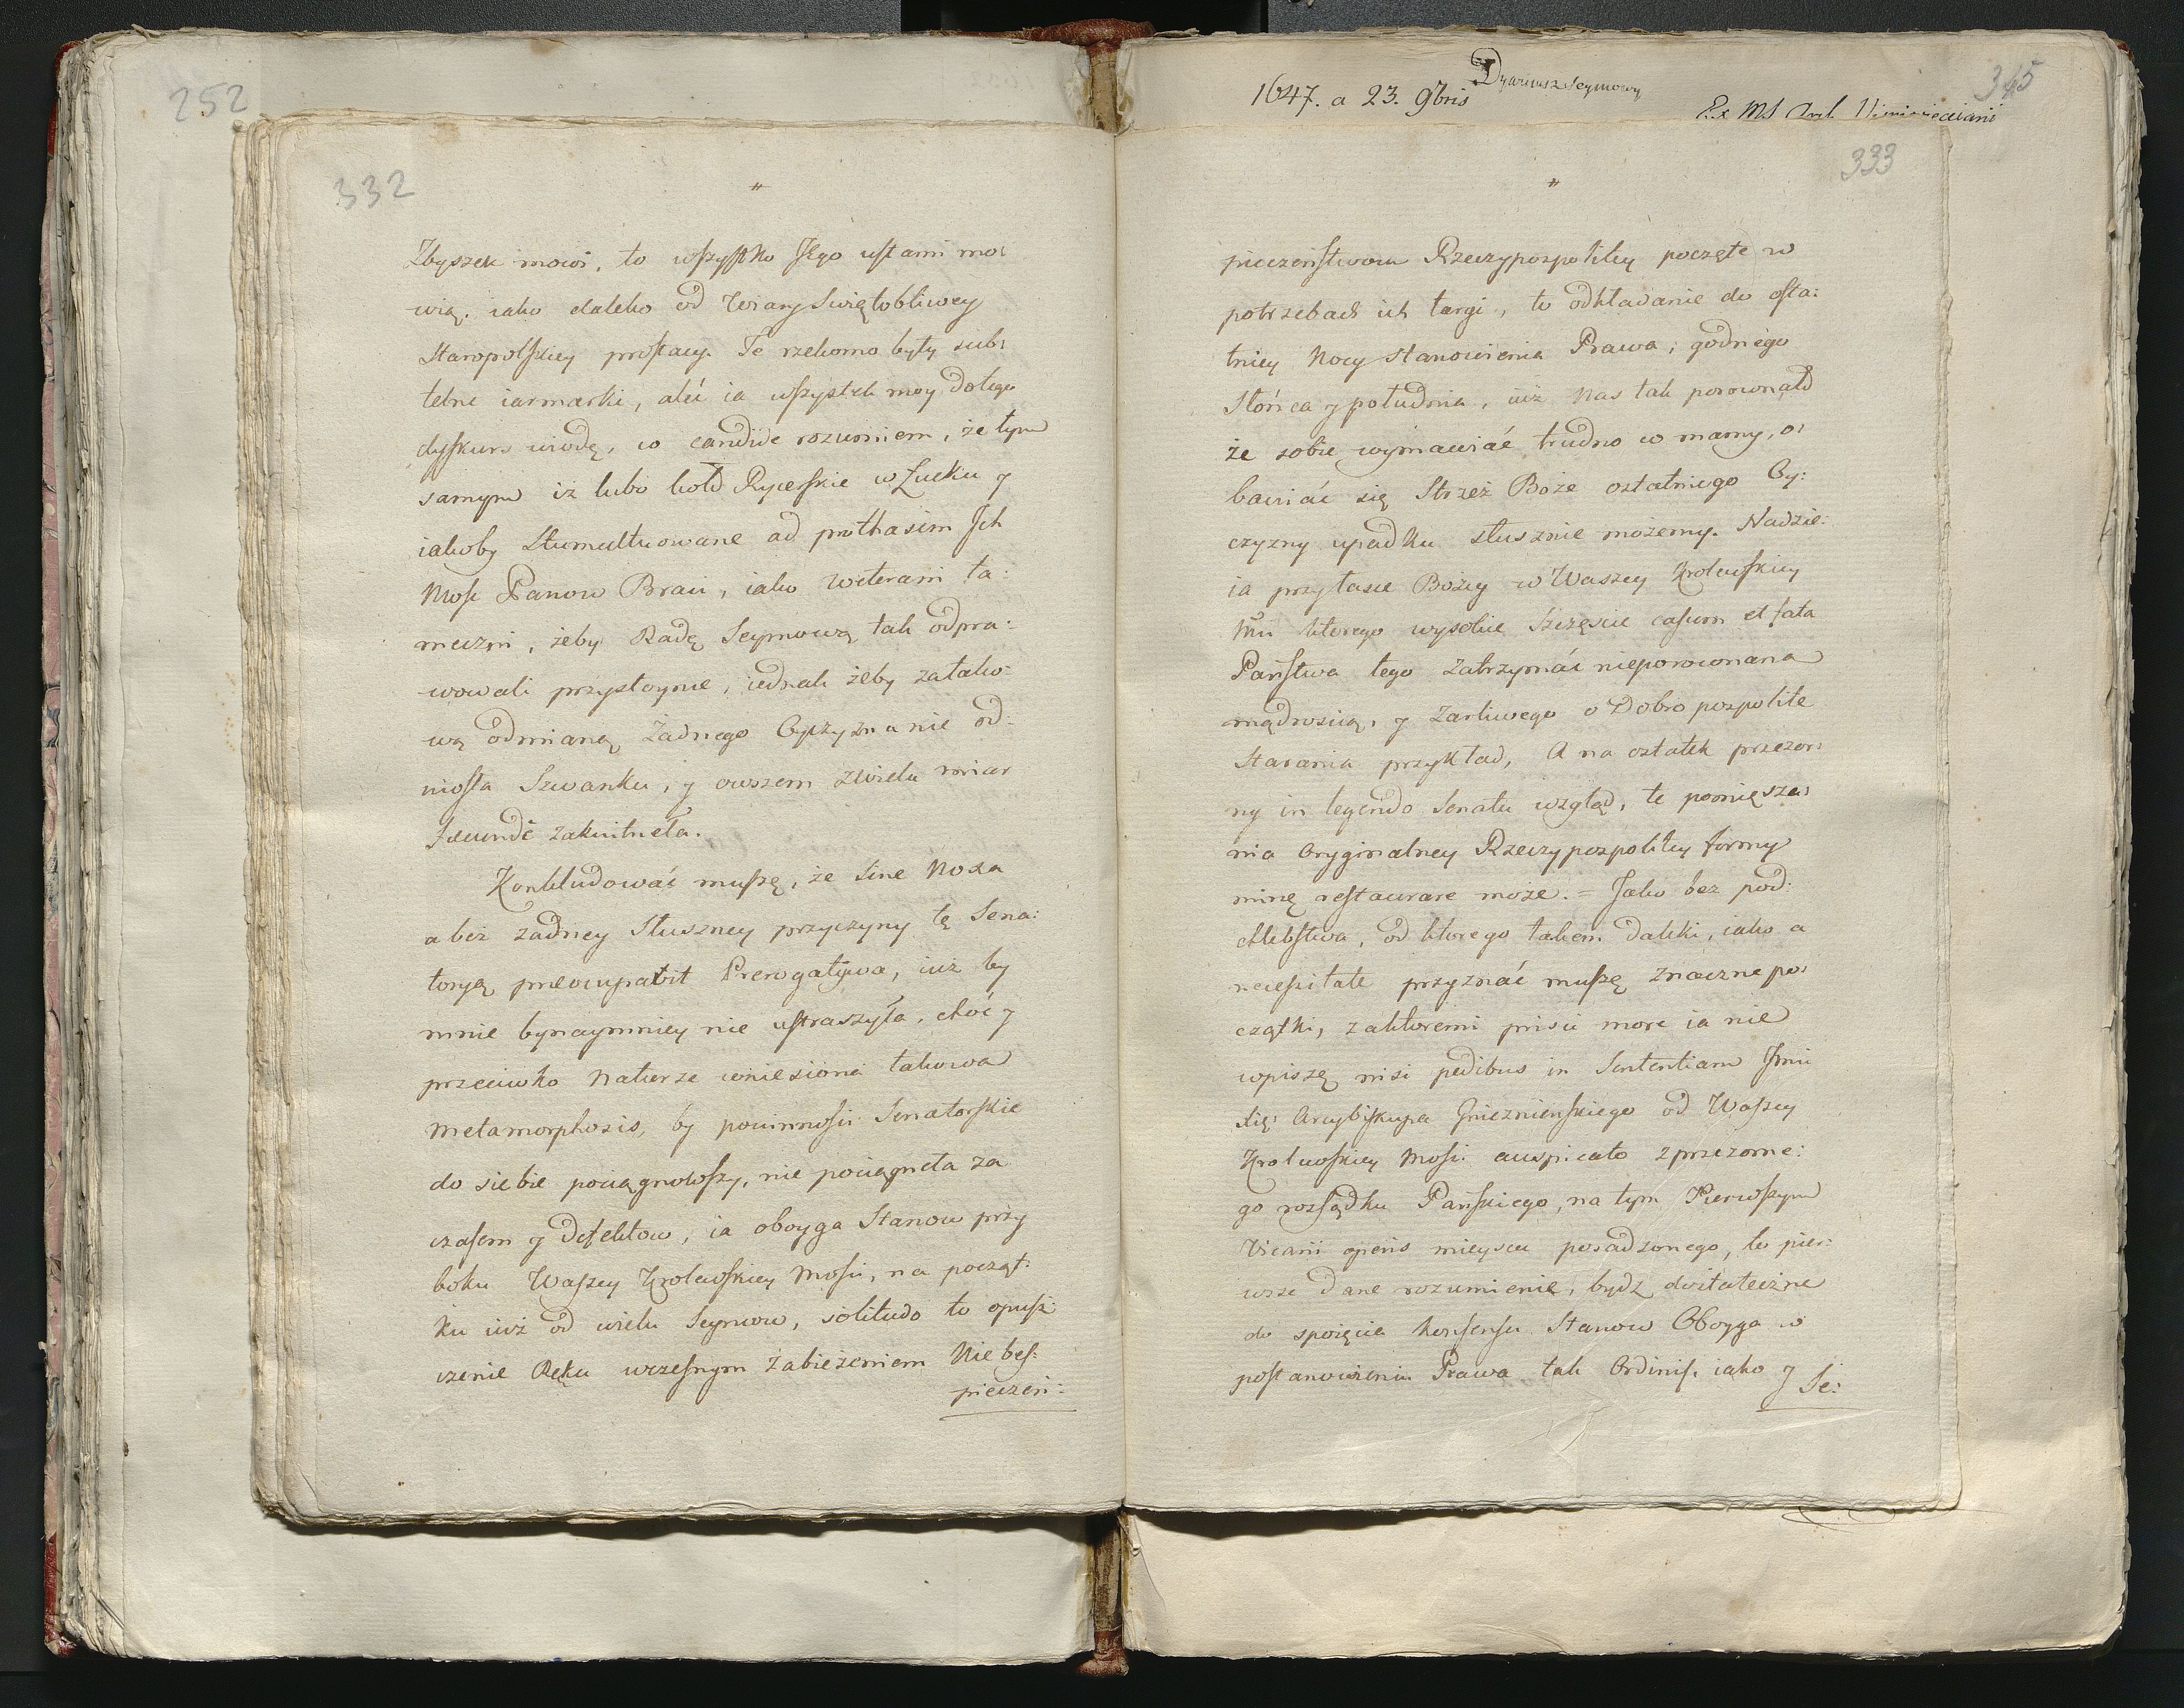 252
332
"
Zbyszek mowi, to wszystko Jego ustami mo:
wią. iako daleko od Wiary Swiętobliwey
Staropolskiey prostacy. Te rzekomo były sub:
telne iarmarki, aleć ia wszystek moy do tego
dyskurs wiodę, co candide rozumiem, że tym
samym iż lubo koło Rycerskie w Łucku y
iakoby stumultuowane ad prothasim Ich
Mość Panow Braci, iako weterani ta:
meczni, żeby Radę Seymową tak odpra:
wowali przystoynie, iednak żeby za tako:
wą odmianą żadnego Oyczyzna nie od:
niosła Szwanku, y owszem z wielu miar
secundè zakwitneła.
Konkludować muszę, że sine Noxa
a bez żadney Słuszney przyczyny tę Sena:
toryą preoccupabit Prerogatywa, iuż by
mnie bynaymniey nie ustraszyła, choć y
przeciwko Naturze wniesiona takowa
Metamorphosis, by powinności Senatorskie
do siebie pociągnowszy, nie pociągneła za
czasem y Defektow, ia oboyga Stanow przy
boku Waszey Krolewskiey Mości, na począt:
ku iuż od wielu Seymow, solitudo to opusz:
czenie Ręku wczesnym zabieżeniem Niebes:
pieczeń:
1647. a 23. 9bris
Dyariusz Seymowy
345
Ex MS Arch.
333
"
pieczeństwom Rzeczypospolitey poczęte w
potrzebach ich targi, to odkładanie do osta:
tniey Nocy stanowienia Prawa, godnego
Słońca y południa, iuż Nas tak porownało
że sobie wymawiać trudno co mamy, o:
bawiać się Strzeż Boże ostatniego Oy:
czyzny upadku słusznie możemy. Nadzie:
ia przy łasce Bożey w Waszey Krolewskiey
Mci ktorego wysokie szczęście casum et fata
Państwa tego zatrzymać nieporownana
mądrością, y żarliwego o Dobro pospolite
Starania przykład, A na ostatek przezor:
ny in legendo Senatu wzgląd, te pomięsza:
nia Oryginalney Rzeczypospolitey formy
minę restaurare może. = Jako bez pod:
chlebstwa, od ktorego takem daleki, iako a
necessitate przyznać muszę znaczne po:
czątki, za ktoremi prisci more ia nie
wpiszę nisi pedibus in Sententiam Jmci
Xię: Arcybiskupa Gnieznienskiego od Waszey
Krolewskiey Mości auspicato z przezorne:
go rozsądku Pańskiego, na tym Pierwszym
Vicarii operis mieyscu posadzonego, to pier:
wsze dane rozumienie, bydz dostateczne
do spoięcia konsensu Stanow Oboyga w
postanowieniu Prawa tak Ordinis. iako y
Se: